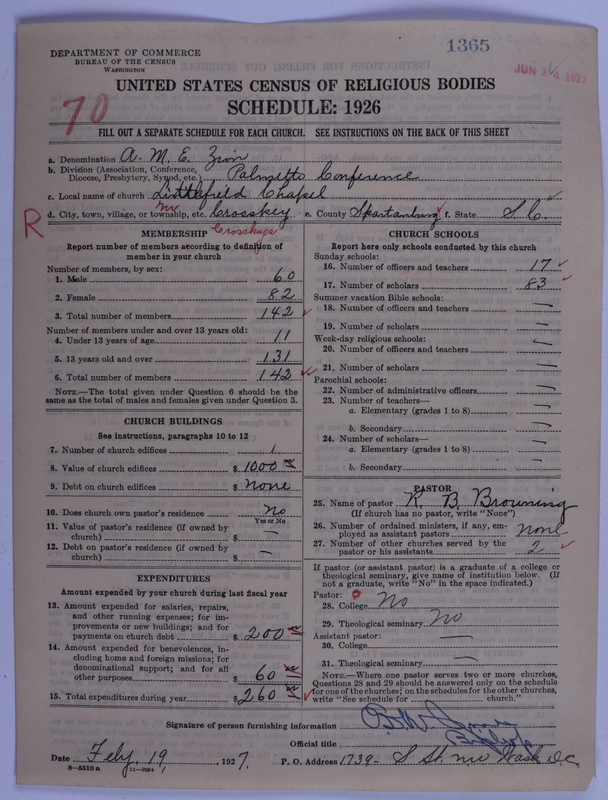 1365
DEPARTMENT OF COMMERCE
BUREAU OF THE CENSUS
WASHINGTON
JUN 14 1927
UNITED STATES CENSUS OF RELIGIOUS BODIES
SCHEDULE: 1926
70
FILL OUT A SEPARATE SCHEDULE FOR EACH CHURCH. SEE INSTRUCTIONS ON THE BACK OF THIS SHEET
a. Denomination A. M. E. Zion
b. Division (Association, Conference, Diocese, Presbytery, Synod, etc.) Palmetto Conference
c. Local name of church Littlefield Chapel
d. City, town, village, or township, etc. Crosskey e. County Spartanburg f. State S. C.
R
Crosskeys
MEMBERSHIP
Report number of members according to definition of member in your church
Number of members, by sex:
1. Male 60
2. Female 82
3. Total number of members 142
Number of members under and over 13 years old:
4. Under 13 years of age 11
5. 13 years old and over 131
6. Total number of members 142
NOTE.—The total given under Question 6 should be the same as the total of males and females given under Question 3.
CHURCH BUILDINGS
See instructions, paragraphs 10 to 12
7. Number of church edifices 1
8. Value of church edifices $ 1000
9. Debt on church edifices $ None
10. Does church own pastor's residence? No
Yes or No
11. Value of pastor's residence (if owned by church) $ —
12. Debt on pastor's residence (if owned by church) $ —
EXPENDITURES
Amount expended by your church during last fiscal year
13. Amount expended for salaries, repairs, and other running expenses; for improvements or new buildings; and for payments on church debt $ 200
14. Amount expended for benevolences, including home and foreign missions; for denominational support; and for all other purposes $ 60
15. Total expenditures during year $ 260
CHURCH SCHOOLS
Report here only schools conducted by this church
Sunday schools:
16. Number of officers and teachers 17
17. Number of scholars 83
Summer vacation Bible schools:
18. Number of officers and teachers —
19. Number of scholars —
Week-day religious schools:
20. Number of officers and teachers —
21. Number of scholars —
Parochial schools:
22. Number of administrative officers —
23. Number of teachers—
a. Elementary (grades 1 to 8) —
b. Secondary —
24. Number of scholars—
a. Elementary (grades 1 to 8) —
b. Secondary —
PASTOR
25. Name of pastor R. B. Browning
(If church has no pastor, write "None")
26. Number of ordained ministers, if any, employed as assistant pastors none
27. Number of other churches served by the pastor or his assistants 2
If pastor (or assistant pastor) is a graduate of a college or theological seminary, give name of institution below. (If not a graduate, write "No" in the space indicated.)
Pastor:
28. College No
29. Theological seminary No
Assistant pastor:
30. College —
31. Theological seminary —
NOTE.—Where one pastor serves two or more churches, Questions 28 and 29 should be answered only on the schedule for one of the churches; on the schedules for the other churches, write "See schedule for ........ church."
Signature of person furnishing information
Official title Bishop
Date Feby. 19, 1927. P. O. Address 1739- S St. NW Wash D.C.
8—5518 a 11—9264